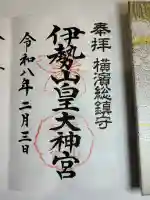 奉拝 横濱総鎮守
伊勢山皇大神宮
令和八年二月三日